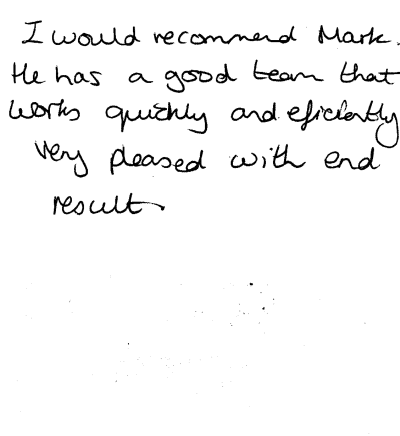 I would recommend Mark.
He has a good team that
works quickly and eficiently
very pleased with end
result.